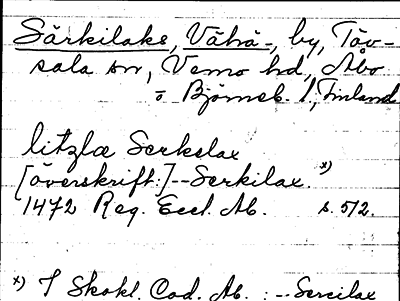 Särkilaks, Vähä-, by, Töv-
sala sn, Vemo hd, Åbo
o Björneb. l., Finland
litzlæ Serkelax
[överskrift:] -- Serkilax. x)
1472 Reg. Eccl. Ab. s. 512.
x) I Skokl. Cod. Ab. : -- Sercilax